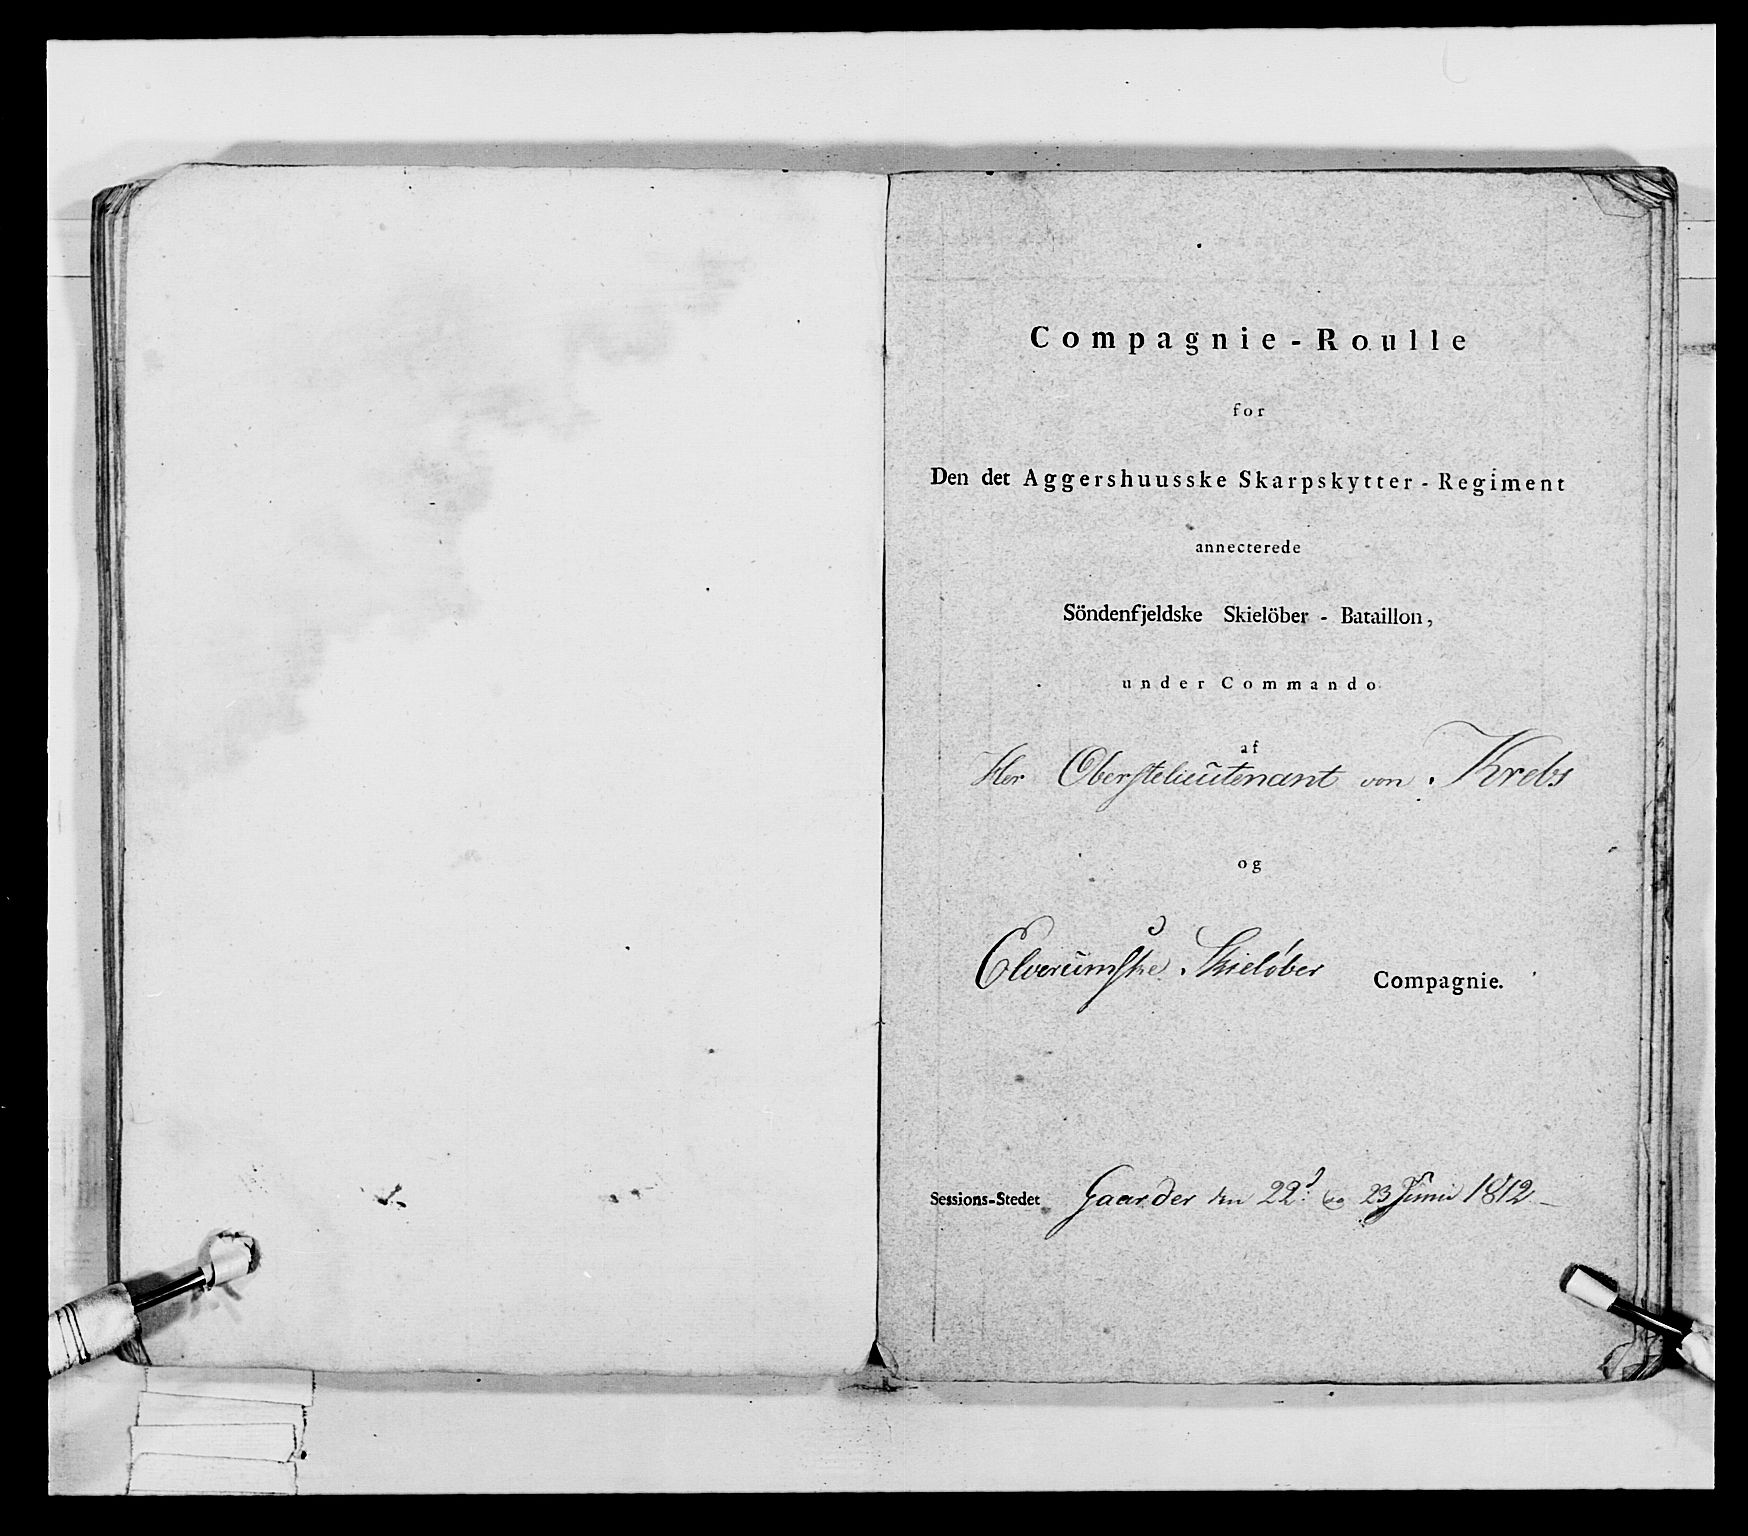 Compagnie-Roulle
for
Den det Aggershuusske Skarpskytter-Regiment
annecterede
Söndenfjeldske Skielöber-Bataillon,
under Commando
af
Her Oberstelieutenant von Krebs
og
Elverumske Skielöber Compagnie.
Sessions-Stedet Gaarder den 22d og 23 Junii 1812